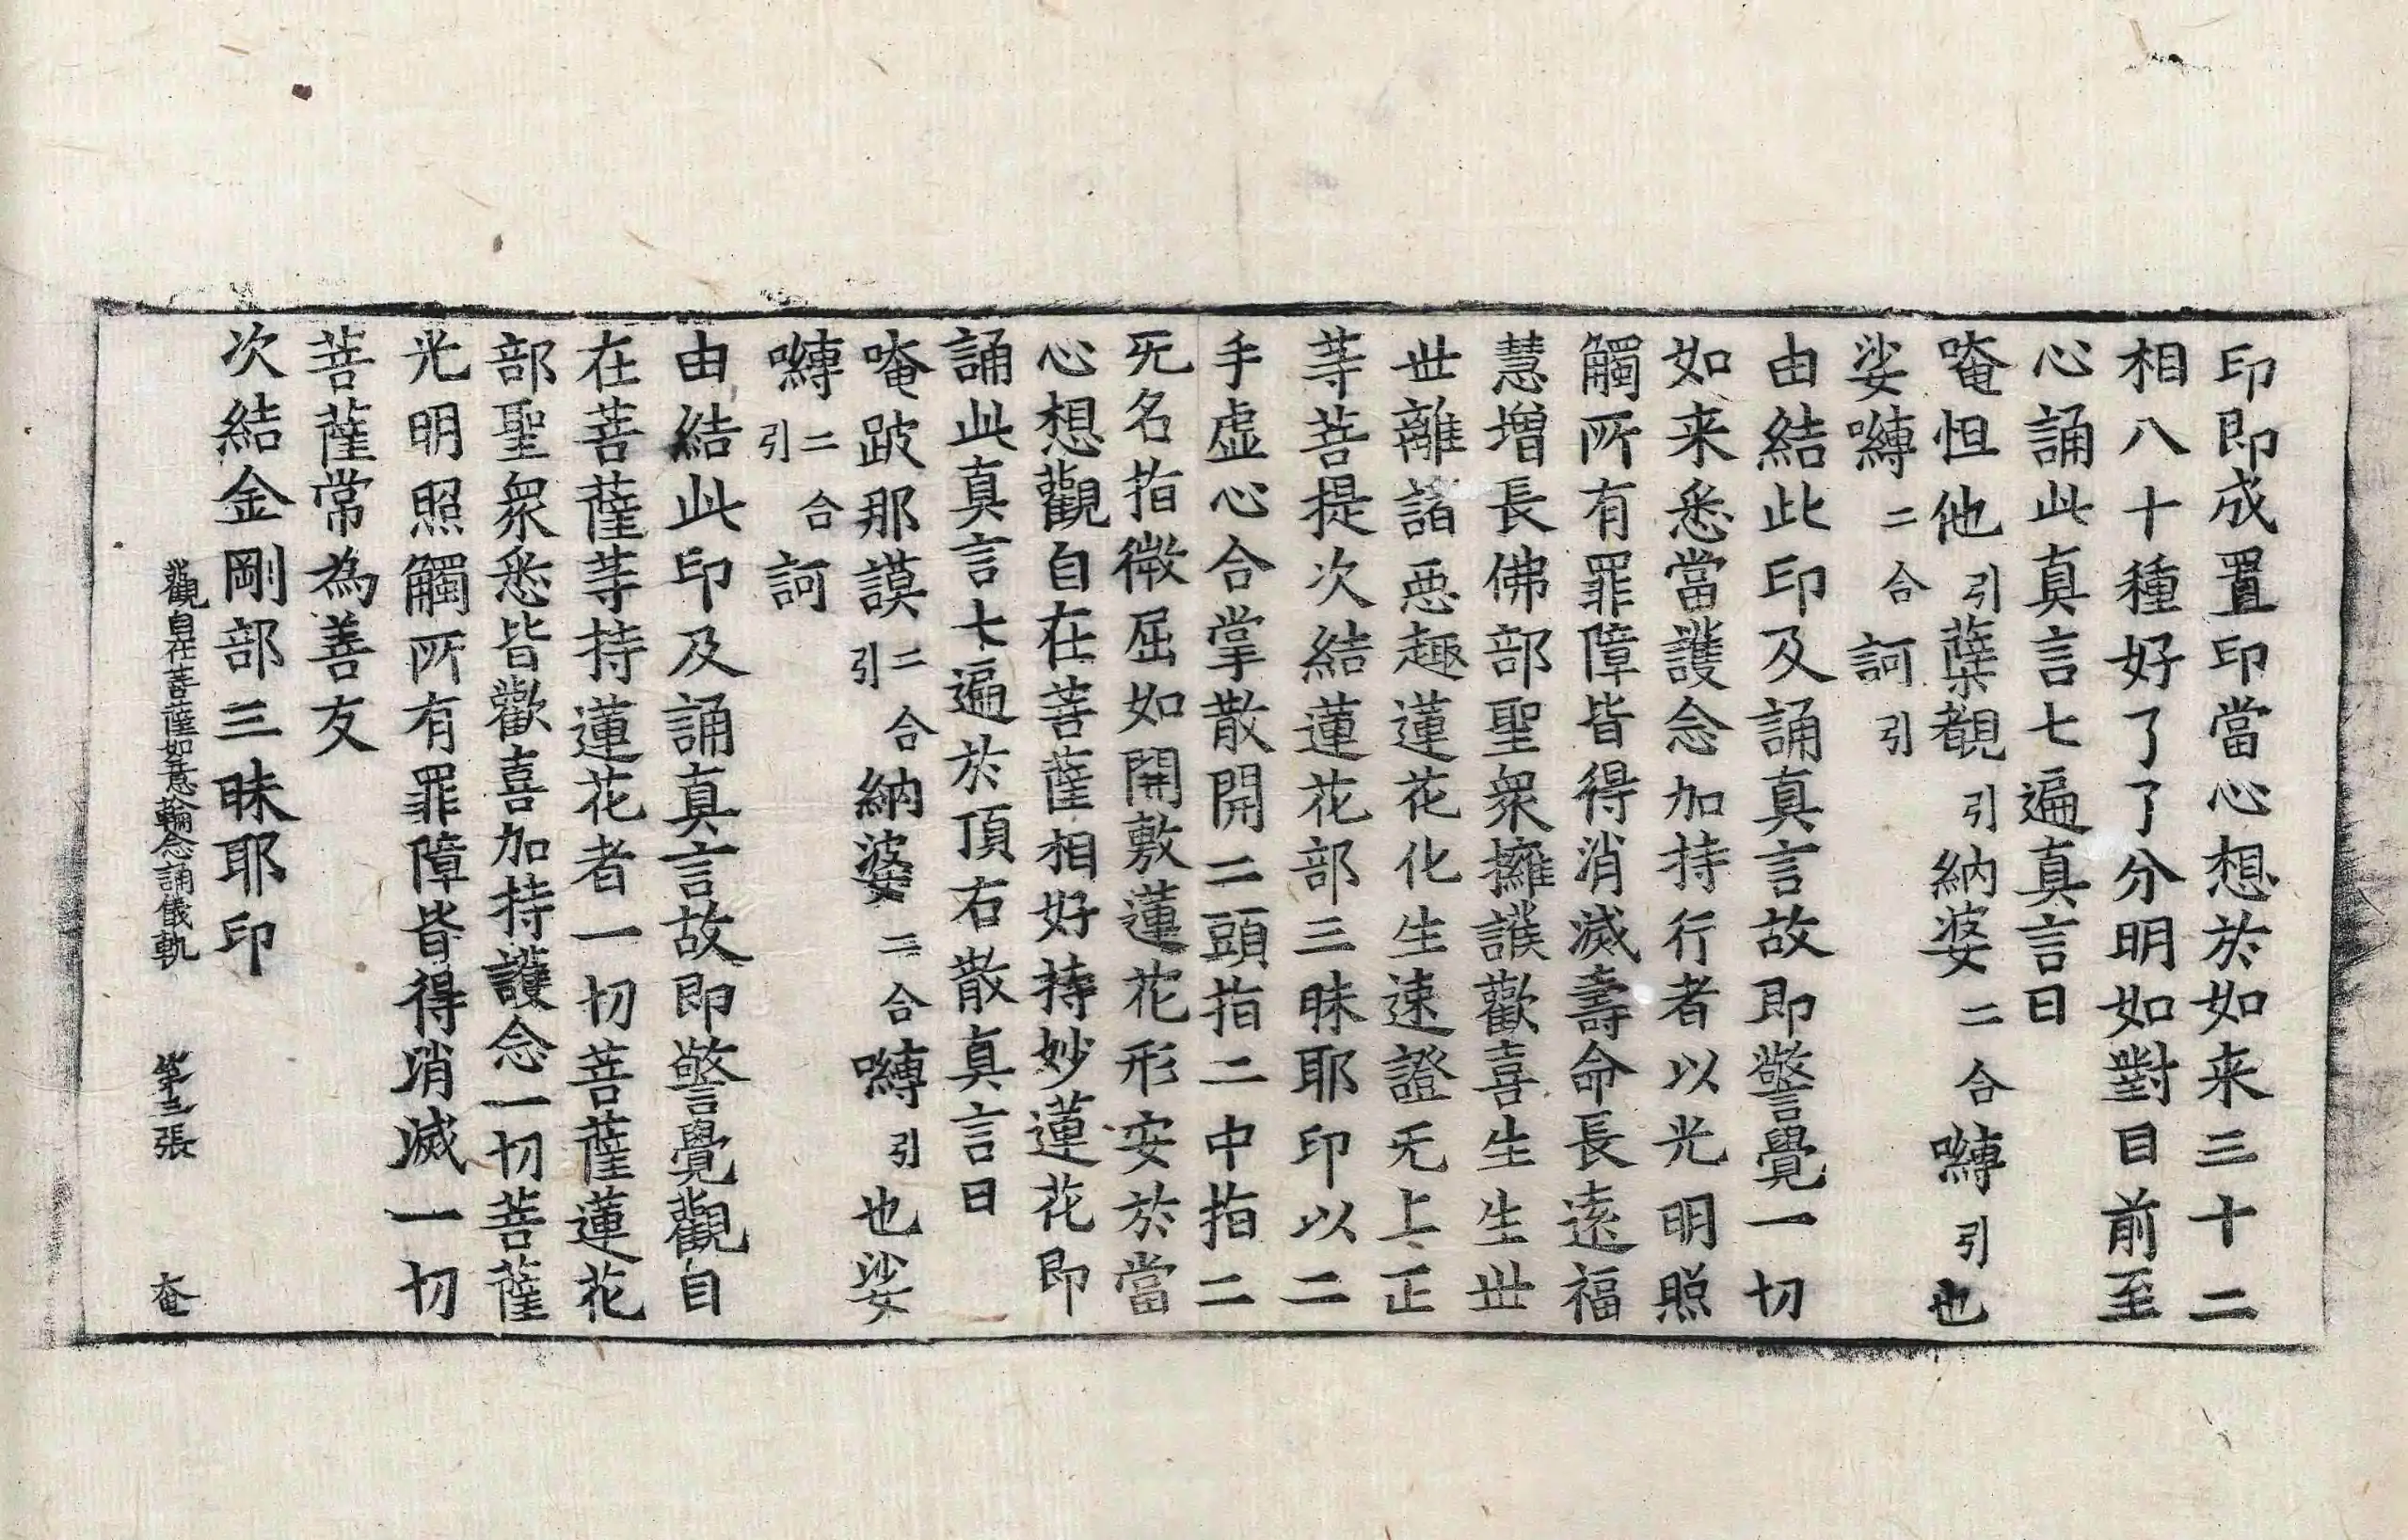 印即成置印當心想於如来三十二
相八十種好了了分明如對目前至
心誦此真言七遍真言曰
唵怛他引蘖覩引納婆二合嚩引也
娑嚩二合訶引
由結此印及誦真言故即警覺一切
如来悉當護念加持行者以光明照
觸所有罪障皆得消滅壽命長遠福
慧増長佛部聖衆擁護歡喜生生世
世離諸惡趣蓮花化生速證无上正
等菩提次結蓮花部三昧耶印以二
手虛心合掌散開二頭指二中指二
无名指微屈如開敷蓮花形安於當
心想觀自在菩薩相好持妙蓮花即
誦此真言七遍於頂右散真言曰
唵跛那謨二合引納婆二合嚩引也娑
嚩二合引訶
由結此印及誦真言故即警覺觀自
在菩薩等持蓮花者一切菩薩蓮花
部聖衆悉皆歡喜加持護念一切菩薩
光明照觸所有罪障皆得消滅一切
菩薩常為善友
次結金剛部三昧耶印
觀自在菩薩如意輪念誦儀軌 第三張 奄